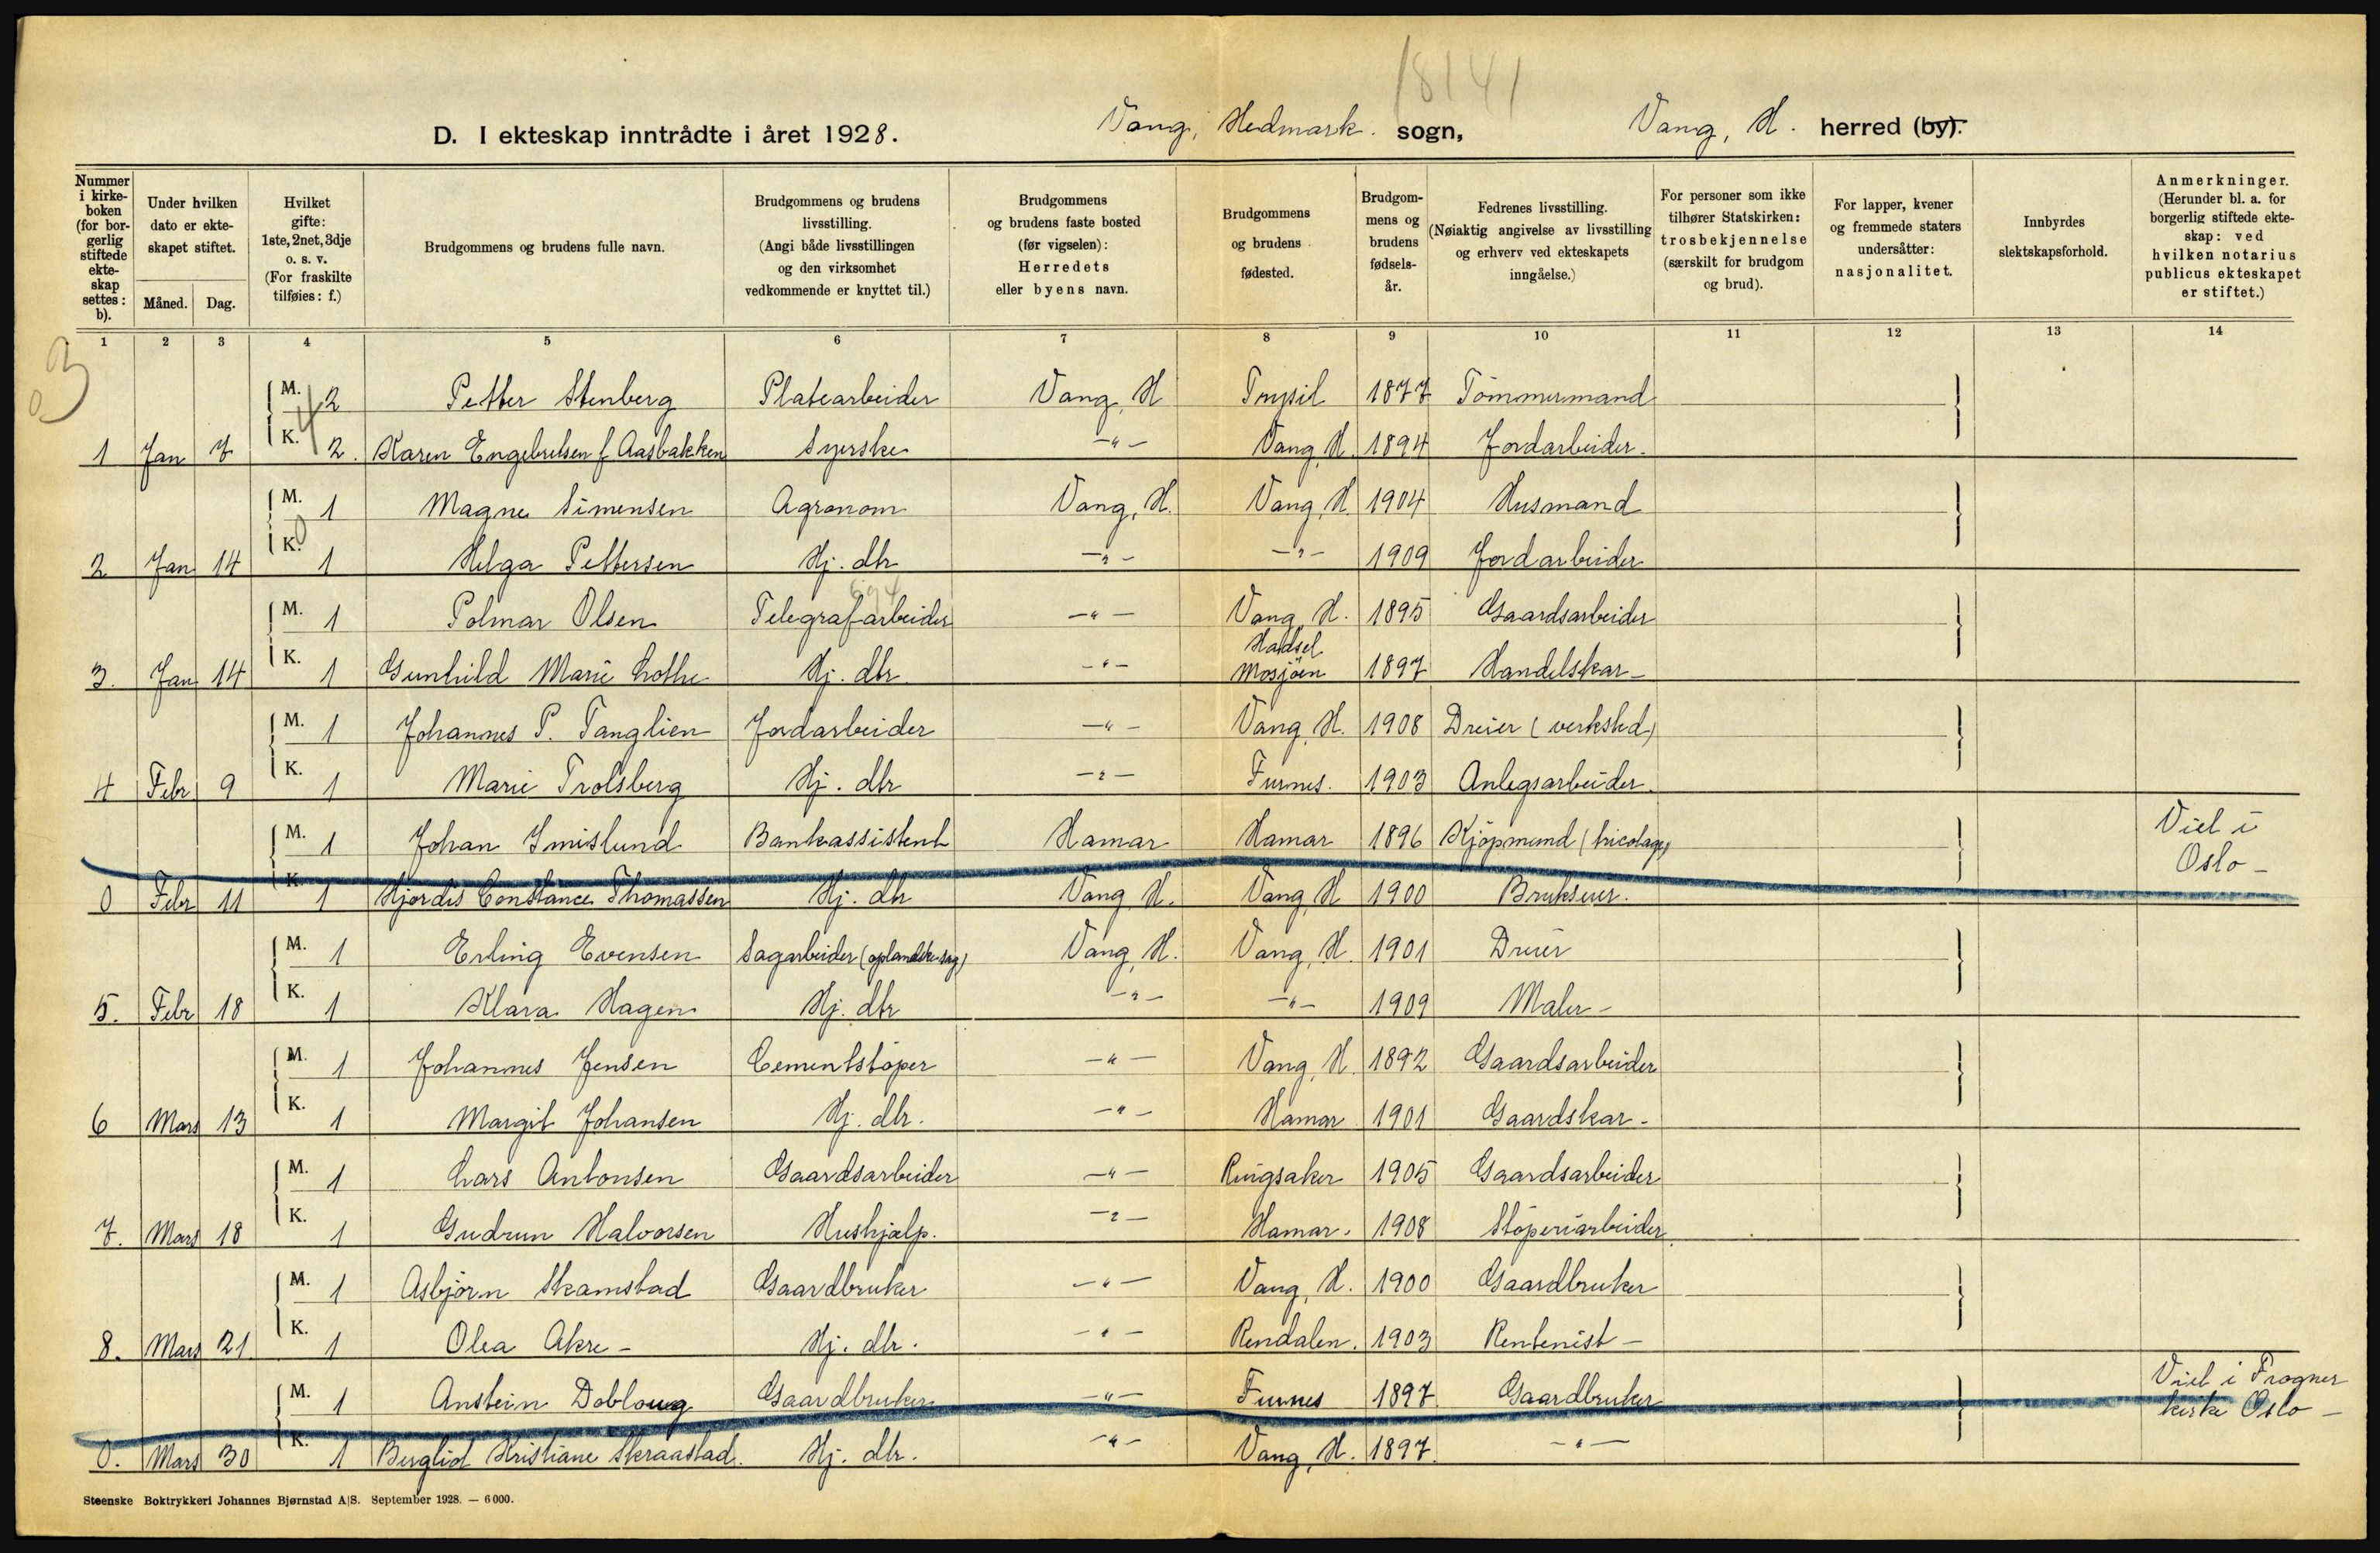 18141
D. I ekteskap inntrådte i året 1928. Vang, Hedmark. sogn, Vang, H. herred (by).
Nummer i kirkeboken (for borgerlig stiftede ekteskap settes: b).
Under hvilken dato er ekteskapet stiftet.
Måned. Dag.
Hvilket gifte: 1ste, 2net, 3dje o. s. v. (For fraskilte tilføies: f.)
Brudgommens og brudens fulle navn.
Brudgommens og brudens livsstilling. (Angi både livsstillingen og den virksomhet vedkommende er knyttet til.)
Brudgommens og brudens faste bosted (før vigselen): Herredets eller byens navn.
Brudgommens og brudens fødested.
Brudgommens og brudens fødselsår.
Fedrenes livsstilling. (Nøiaktig angivelse av livsstilling og erhverv ved ekteskapets inngåelse.)
For personer som ikke tilhører Statskirken: trosbekjennelse (særskilt for brudgom og brud).
For lapper, kvener og fremmede staters undersåtter: nasjonalitet.
Innbyrdes slektskapsforhold.
Anmerkninger. (Herunder bl. a. for borgerlig stiftede ekteskap: ved hvilken notarius publicus ekteskapet er stiftet.)
1 2 3 4 5 6 7 8 9 10 11 12 13 14
M. 2 Petter Stenberg Platearbeider Vang, H Trysil 1877 Tömmermand
1 Jan 7 K. 2. Karen Engebretsen f. Aasbakken Syerske -"- Vang, H. 1894 Jordarbeider.
M. 1 Magne Simensen Agronom Vang, H. Vang, H. 1904 Husmand
2 Jan 14 K. 1 Helga Pettersen Hj. dtr -"- -"- 1909 Jordarbeider
M. 1 Polmar Olsen Telegrafarbeider -"- Vang, H. 1895 Gaardsarbeider
3. Jan 14 K. 1 Gunhild Marie Lothe Hj. dtr. -"- Hadsel Mosjöen 1897 Handelskar-
M. 1 Johannes P. Tanglien Jordarbeider -"- Vang, H. 1908 Dreier (verksted)
4 Febr 9 K. 1 Marie Trolsberg Hj. dtr -"- Furnes. 1903 Anlegsarbeider.
M. 1 Johan Imislund Bankassistent Hamar Hamar 1896 Kjöpmand (tricotage) Viet i
Oslo-
0 Febr 11 K. 1 Hjördis Constance Thomassen Hj. dtr Vang, H. Vang, H 1900 Brukseier.
M. 1 Erling Evensen Sagarbeider (oplandske sag) Vang, H. Vang, H. 1901 Dreier
5. Febr 18 K. 1 Klara Hagen Hj. dtr -"- -"- 1909 Maler-
M. 1 Johannes Jensen Cementstöper -"- Vang, H. 1892 Gaardsarbeider
6 Mars 13 K. 1 Margit Johansen Hj. dtr. -"- Hamar 1901 Gaardskar-
M. 1 Lars Antonsen Gaardsarbeider -"- Ringsaker 1905 Gaardsarbeider
7. Mars 18 K. 1 Gudrun Halvorsen Hushjælp. -"- Hamar. 1908 Stöperiarbeider.
M. 1 Asbjörn Skamstad Gaardbruker -"- Vang, H. 1900 Gaardbruker
8. Mars 21 K. 1 Olea Akre- Hj. dtr. -"- Rendalen. 1903 Rentenist-
M. 1 Anstein Dobloug Gaardbruker -"- Furnes 1897 Gaardbruker Viet i Frogner
kirke Oslo-
0. Mars 30 K. 1 Bergliot Kristiane Skraastad. Hj. dtr. -"- Vang, H. 1897. -"-
Steenske Boktrykkeri Johannes Bjørnstad A|S. September 1928. — 6000.